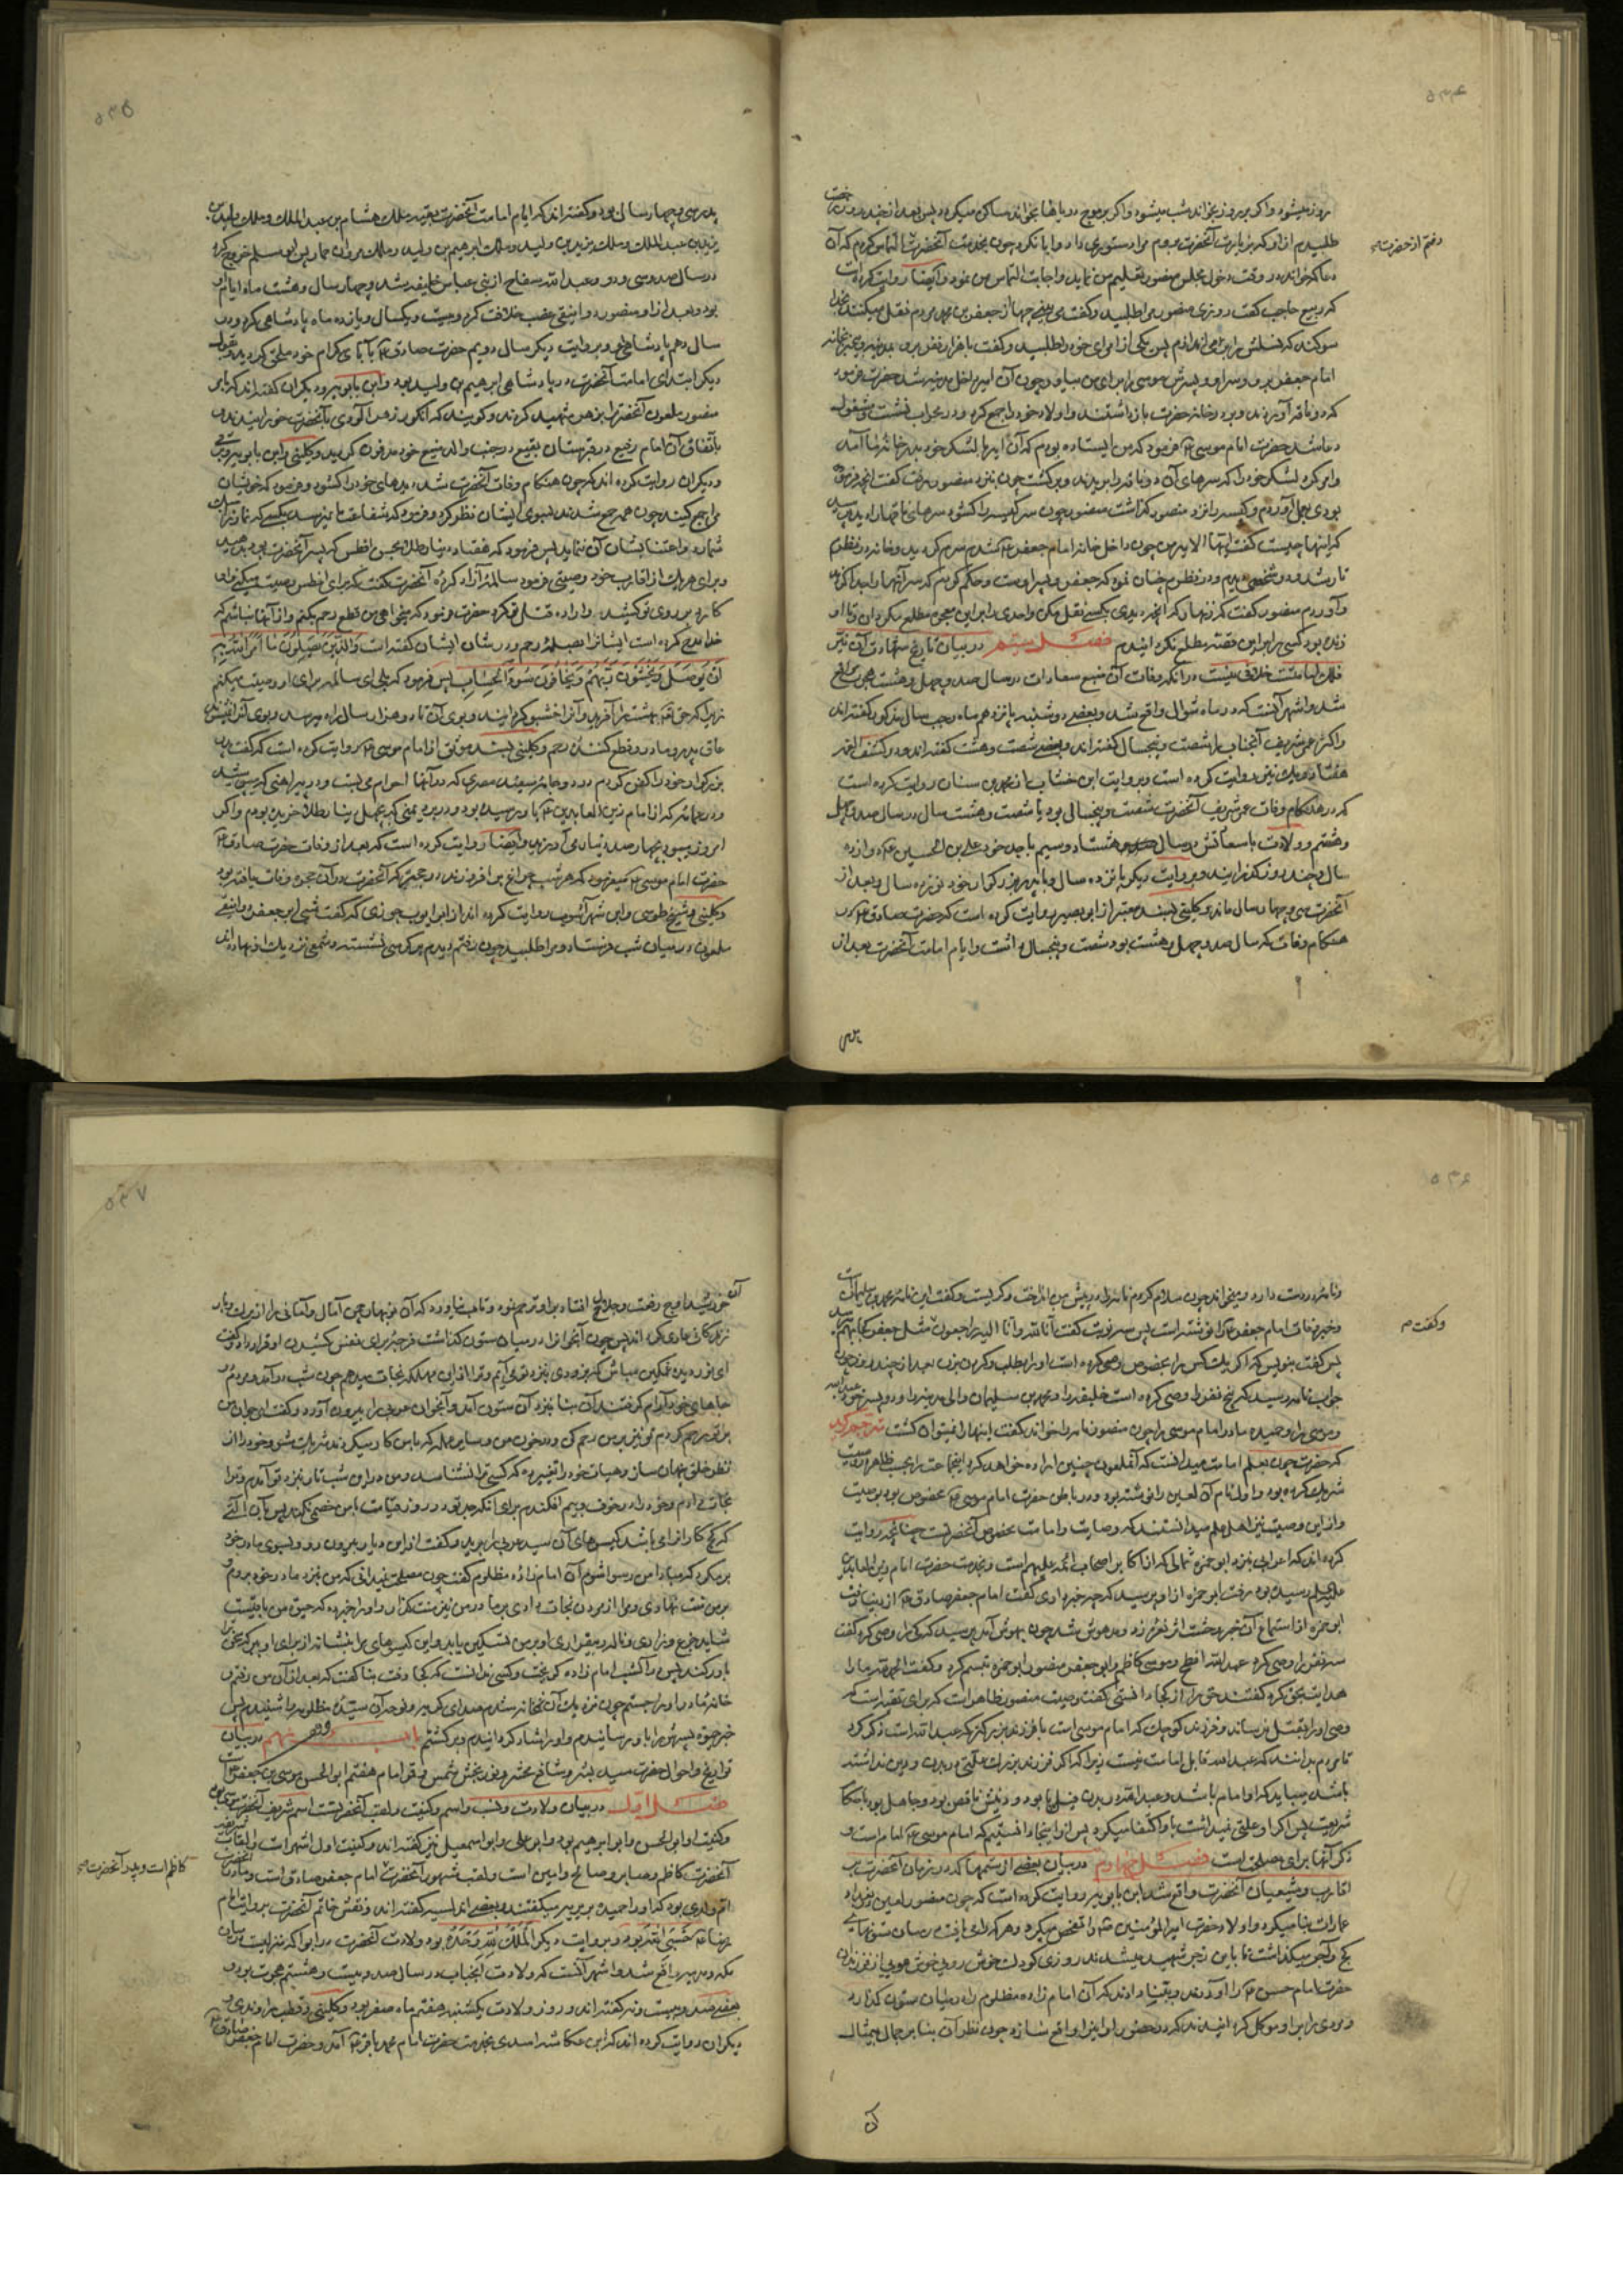 ۵۳۴
روز میشود واگر بر روز بخواند شب میشود واگر بر موج دریاها بخواند ساکن میکردد پس بعد از چند روز رخصت
طلبیدم از او که بزیارت آنحضرت بروم مرا دستوری داد وابا نکرد چون بخدمت آنحضرت التماس کردم که آن
رفتم از حضرت
دعا که خواند در وقت دخول مجلس منصور تعلیم من نماید واجابت التماس من نمود وایضا روایت کرده است
که ربیع حاجب گفت روزی منصور مرا طلبید وگفت می بینی چها از جعفر بن محمد مردم نقل میکنند بخدا
سوگند که نسلش را بر می اندازم پس یکی از امرای خود را طلبید وگفت با هزار نفر برو بمدینه وبیخبر بخانه
امام جعفر برو وسر او وپسرش موسی را برای من بیاور چون آن امیر داخل مدینه شد حضرت فرمود
که دو ناقه آوردند وبر در خانه حضرت بازداشتند واولاد خود را جمع کرد ودر محراب نشست ومشغول
دعا شد حضرت امام موسی ع فرمود که من ایستاده بودم که آن امیر با لشکر خود بدر خانه ما آمد
وامر کرد لشکر خود را که سرهای آن دو ناقه را بریدند وبرگشت چون بنزد منصور رفت گفت انچه فرموده
بودی بعمل آوردم وکیسه را نزد منصور گذاشت منصور چون سر کیسه را گشود سرهای ناقها را دید پرسید
که اینها چیست گفت ایها الامیر من چون داخل خانه امام جعفر ع شدم سرم گردید وخانه در نظرم
تار شد ودو شخص دیدم ودر نظرم چنان نمود که جعفر وپسر اوست وحکم کردم که سر آنها را جدا کردند
وآوردم منصور گفت که زنهار که آنچه دیدی بکسی نقل مکن واحدی را بر این معجزه مطلع مکردان وتا او
زنده بود کسی را بر این قصه مطلع نکردانیدم فصل سیم در بیان تاریخ شهادت آن نیر
فلک امامتست خلافی نیست در انکه وفات آن منبع سعادات در سال صد وچهل وهشت هجری واقع
شد واشهر آنست که در ماه شوال واقع شد وبعضی دوشنبه پانزدهم ماه رجب سال مذکور گفته اند
واکثر عمر شریف آنجناب را شصت وپنجسال گفته اند وبعضی شصت وهشت گفته اند ودر کشف الغمه
هفتاد ویک نیز روایت کرده است وبروایت ابن خشاب از محمد بن سنان روایت کرده است
که در هنگام وفات عمر شریف آنحضرت شصت وپنجسالی بود یا شصت وهشت سال در سال صد وچهل
وهشتم وولادت با سعادتش در سال هشتاد وسیم با جد خود علی بن الحسین ع دوازده
سال وچند روز گذرانید وبروایت دیگر پانزده سال وبا پدر بزرگوار خود نوزده سال وبعد از
آنحضرت سی وچهار سال ماند وکلینی بسند معتبر از ابو بصیر روایت کرده است که حضرت صادق ع در
هنگام وفات که سال صد وچهل وهشت بود شصت وپنجسال داشت وایام امامت آنحضرت بعد از
پدرش
۵۳۵
پدر سی وچهار سال بود وگفته اند که ایام امامت آنحضرت بقیه ملک هشام بن عبد الملک وملک ولید بن
یزید بن عبد الملک وملک یزید بن ولید وملک ابرهیم بن ولید وملک مروان حمار پس ابو مسلم خروج کرد
در سال صد وسی ودو وعبد الله سفاح از بنی عباس خلیفه شد وچهار سال وهشت ماه ایام او
بود وبعد از او منصور دوانیقی غصب خلافت کرد وبیست ویکسال ویازده ماه پادشاهی کرد ودر
سال دهم پادشاهی او وبروایت دیگر سال دویم حضرت صادق ع بآبای کرام خود ملحق گردید وبقول
دیگر ابتدای امامت آنحضرت در پادشاهی ابرهیم بن ولید بود وابن بابویه ودیگران گفته اند که بامر
منصور ملعون آنحضرت را بزهر شهید کردند وگویند که انگور زهر آلودی بآنحضرت خورانیدند
باتفاق آن امام رفیع در قبرستان بقیع در جنب والد منیع خود مدفون گردید وکلینی وابن بابویه وبرقی
ودیگران روایت کرده اند که چون هنگام وفات آنحضرت شد دیدهای خود را گشود وفرمود که خویشان
مرا جمع کنید چون همه جمع شدند بسوی ایشان نظر کرد وفرمود که شفاعت ما نمیرسد بکسی که نماز را سبک
شمارد واعتنا بشان آن ننماید پس فرمود که هفتاد دینار طلا بحسن افطس که پسر عم آنحضرت بود بدهید
وبرای هر یک از اقارب خود وصیتی فرمود سالمه آزاد کرده آنحضرت گفت که برای افطس وصیت میکنی که او
کارد بر روی تو کشید واراده قتل تو کرد حضرت فرمود که میخواهی من قطع رحم بکنم واز آنها نباشم که
خدا مدح کرده است ایشانرا بصله رحم ودر شان ایشان گفته است والذین یصلون ما امر الله به
ان یوصل ویخشون ربهم ویخافون سوء الحساب پس فرمود که بلی ای سالمه برای او وصیت میکنم
زیرا که حق تعالی بهشت را آفرید وآنرا خوشبو گردانید وبوی آن تا دو هزار سال راه میرسد وبوی آنرا نمیشنود
عاق پدر ومادر وقطع کننده رحم وکلینی بسند موثق از امام موسی ع روایت کرده است که گفت پدر
بزرگوار خود را کفن کردم در دو جامه سفید مصری که در آنها احرام می بست ودر پیراهنی که می پوشید
ودر عمامه که از امام زین العابدین ع باو رسیده بود ودر برد یمنی که بچهل دینار طلا خریده بودم واگر
امروز میبود بچهار صد دینار می ارزید وایضا روایت کرده است که بعد از وفات حضرت صادق ع
حضرت امام موسی ع میفرمود که هر شب چراغ بر افروزند در حجره که آنحضرت در آن حجره وفات یافته بود
وکلینی وشیخ طوسی وابن شهر آشوب روایت کرده اند از ابو ایوب جوزی که گفت شبی ابو جعفر دوانیقی
ملعون در میان شب فرستاد ومرا طلبید چون رفتم دیدم بر کرسی نشسته وشمعی نزدیک او نهاده اند
۵۳۶
ونامه در دست دارد ومیخواند چون سلام کردم نامه را در پیش من انداخت وگریست وگفت این نامه محمد بن سلیمان است
وخبر وفات امام جعفر ع را نوشته است پس سه نوبت گفت انا لله وانا الیه راجعون مثل جعفر کجا بهم میرسد
وگفت
پس گفت بنویس که اگر یک کس را بخصوص وصی کرده است او را بطلب وگردن بزن بعد از چند روز چون
جواب نامه رسید که پنج نفر را وصی کرده است خلیفه را ومحمد بن سلیمان والی مدینه را ودو پسر خود عبد الله
وموسی را وحمیده مادر امام موسی را چون منصور نامه را خواند گفت اینها را نمیتوان کشت مترجم گوید
که حضرت چون بعلم امامت میدانست که آن ملعون چنین اراده خواهد کرد آنجماعت را بحسب ظاهر در وصیت
شریک کرده بود واول نام آن لعین را نوشته بود ودر باطن حضرت امام موسی ع مخصوص بود بوصیت
واز این وصیت نیز اهل علم میدانستند که وصایت وامامت مخصوص آنحضرتست چنانچه روایت
کرده اند که اعرابی بنزد ابو حمزه ثمالی که از اکابر اصحاب ائمه علیهم است وبخدمت حضرت امام زین العابدین
علیه السلام رسیده بود رفت ابو حمزه از او پرسید که چه خبر داری گفت امام جعفر صادق ع از دنیا رفت
ابو حمزه از استماع آن خبر وحشت اثر نعره زد ومدهوش شد چون بهوش آمد پرسید که کی را وصی کرد گفت
سه نفر را وصی کرد عبد الله افطح وموسی کاظم وابو جعفر منصور ابو حمزه تبسم کرد وگفت الحمد لله ما را
هدایت بحق کرد گفتند حق را از کجا دانستی گفت وصیت منصور ظاهر است که برای تقیه است که
وصی او را بقتل نرساند وفرزند کوچک که امام موسی است با فرزند بزرگتر که عبد الله است ذکر کرد
تا مردم بدانند که عبد الله قابل امامت نیست زیرا که اگر فرزند بزرگ علتی در بدن ودین نداشته
باشد میباید که او امام باشد وعبد الله در بدن فیل پا بود ودینش ناقص بود وجاهل بود باحکام
شریعت پس اگر او علتی نمیداشت باو اکتفا میکرد پس از اینجا دانستیم که امام موسی ع امام است و
ذکر آنها برای مصلحتی است فصل چهارم در بیان بعضی از ستمها که در زمان آنحضرت بر
اقارب وشیعیان آنحضرت واقع شد ابن بابویه روایت کرده است که چون منصور لعین در بغداد
عمارات بنا میکرد واولاد حضرت امیر المؤمنین ع را تفحص میکرد وهر که را می یافت در میان ستونهای
گچ وآجر میگذاشت تا باین زجر شهید میشدند روزی کودک خوش روی خوش موی از فرزندان
حضرت امام حسن ع را آوردند وببنا دادند که آن امام زاده مظلوم را در میان ستون گذارد
ومردی را بر او موکل گردانیدند که در حضور او اینرا واقع سازد چون نظر آن بنا بر جمال بیمثال
آن
۵۳۷
آن خورشید اوج رفعت وجلال افتاد بر او ترحم نمود وتاب نیاورد که آن نونهال چمن آمال وامانی را از برگ وبار
زندگانی عاری کند پس چون آنحضرت را در میان ستون گذاشت فرجه برای نفس کشیدن او قرار داد وگفت
ای نور دیده غمگین مباش که بزودی بنزد تو می آیم وترا از این مهلکه نجات میدهم چون شب در آمد ومردم در
جاهای خود آرام گرفتند آن بنا بنزد آن ستون آمد وآنجوان علوی را بیرون آورد وگفت ای جوان من
بر تو رحم کردم تو نیز بر من رحم کن ودر خون من وسایر عمله که با من کار میکردند شریک مشو وخود را از
نظر خلق پنهان ساز وهیات خود را تغییر ده که کسی ترا نشناسد ومن در این شب تار بنزد تو آمدم وترا
نجات دادم وخود را در خوف وبیم افکندم برای آنکه جد تو در روز قیامت با من خصمی نکند پس بآن آلتی
که گچ کار را می باشد گیسوهای آن سید علوی را برید وگفت از این دیار بیرون رو وبسوی مادر خود
بر مگرد که مبادا من رسوا شوم آن امام زاده مظلوم گفت چون مصلحت نمیدانی که من نزد مادر خود بروم
بر من منت نهادی ومرا از مردن نجات دادی بر مادر من نیز منت گذار واو را خبر ده که حیوة من باقیست
شاید جزع وزاری وناله وبیقراری او بر من تسکین یابد واین گیسوهای مرا بنشانه از برای او ببر که سخن ترا
باور کند پس در آنشب امام زاده گریخت وکسی ندانست که بکجا رفت بنا گفت که بعد از آن من رفتم بدر
خانه مادر او را جستم چون نزدیک آن خانه رسیدم صدای گریه ونوحه آن سیده مظلومه را شنیدم پس
خبر حیوة پسرش را باو رسانیدم واو را شاد گردانیدم وبرگشتم باب نهم در بیان
تواریخ واحوال حضرت سید بشر وشافع محشر ونور بخش شمس وقمر امام هفتم ابو الحسن موسی بن جعفر است
فصل اول در بیان ولادت ونسب واسم وکنیت ولقب آنحضرتست اسم شریف آنحضرت موسی بود
وکنیت او ابو الحسن وابو ابرهیم بود وابو علی وابو اسمعیل نیز گفته اند وکنیت اول اشهر است والقاب
کاظم است وپدر آنحضرت
آنحضرت کاظم وصابر وصالح وامین است ولقب مشهور آنحضرت امام جعفر صادق است ومادر آنحضرت
ام ولدی بود که او را حمیده بربریه میگفتند وبعضی اندلسیه گفته اند ونقش خاتم آنحضرت بروایت امام
رضا ع حسبی الله بود وبروایت دیگر الملک لله وحده بود ولادت آنحضرت در ابوا که منزلیست میان
مکه ومدینه واقع شد واشهر آنست که ولادت آنجناب در سال صد وبیست وهشتم هجرت بود ودر
بعضی صد وبیست ونه گفته اند وروز ولادت یکشنبه هفتم ماه صفر بود وکلینی وقطب راوندی و
دیگران روایت کرده اند که ابن عکاشه اسدی بخدمت حضرت امام محمد باقر ع آمد وحضرت امام جعفر صادق ع